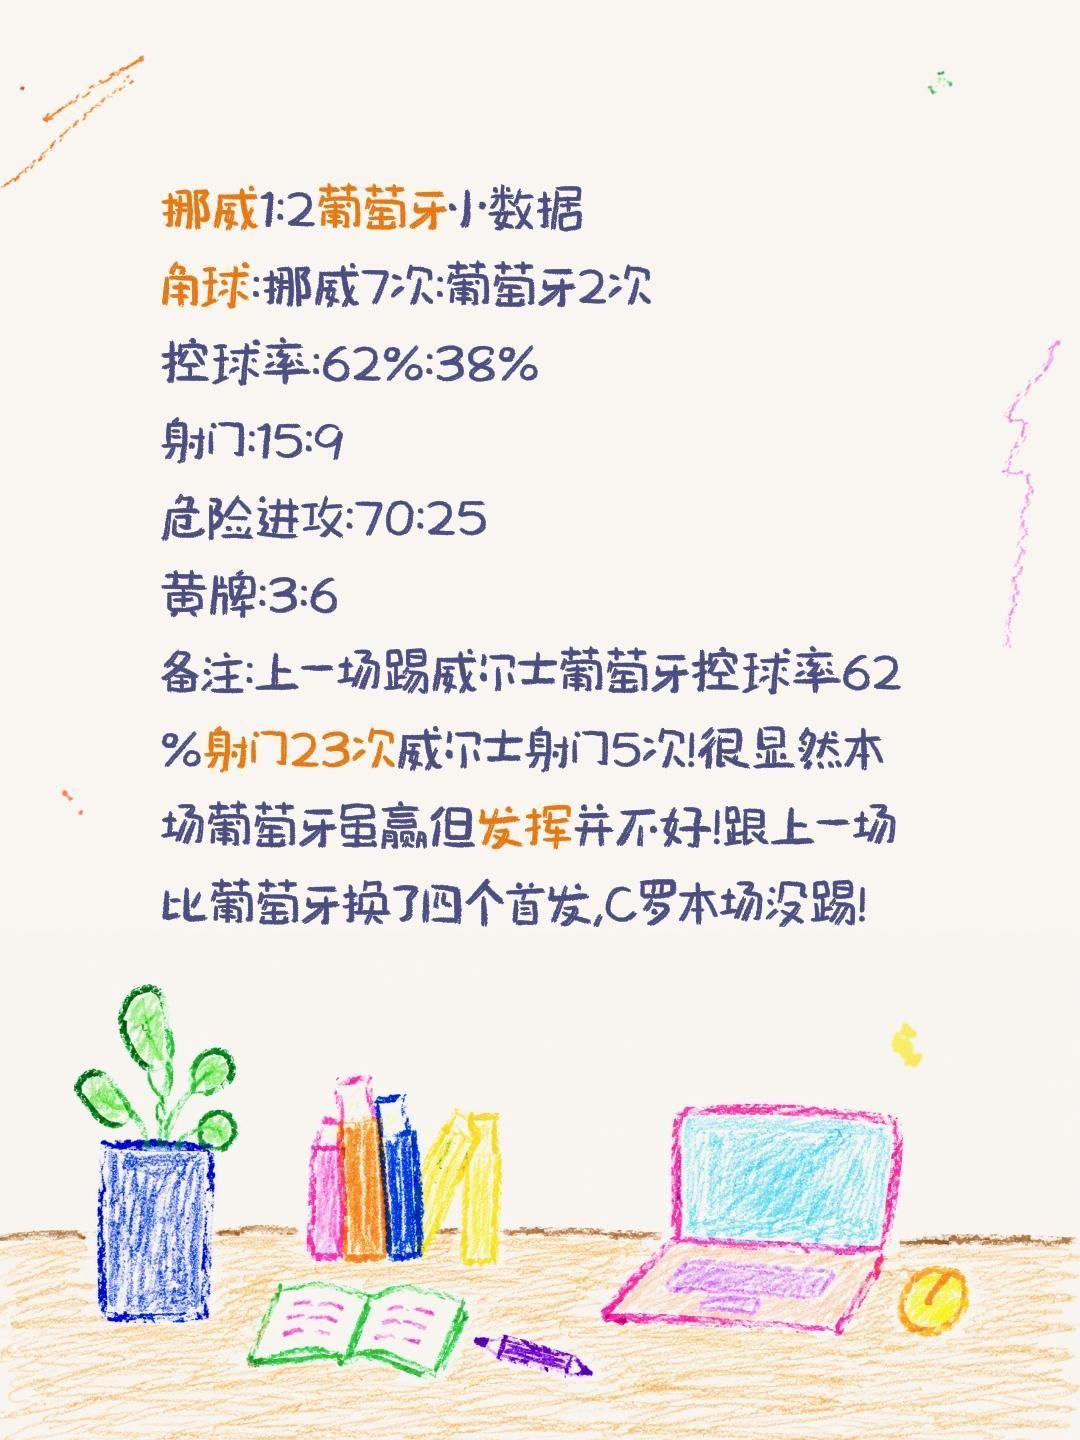 挪威1:2葡萄牙小数据
角球:挪威7次:葡萄牙2次
控球率:62%:38%
射门:15:9
危险进攻:70:25
黄牌:3:6
备注:上一场踢威尔士葡萄牙控球率62
%射门23次威尔士射门5次!很显然本
场葡萄牙虽赢但发挥并不好!跟上一场
比葡萄牙换了四个首发,C罗本场没踢!